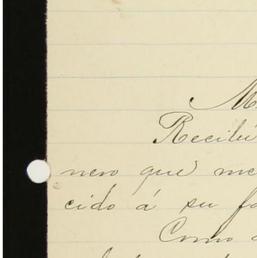 M
Recibí
nero que me
cido á su fa
Como